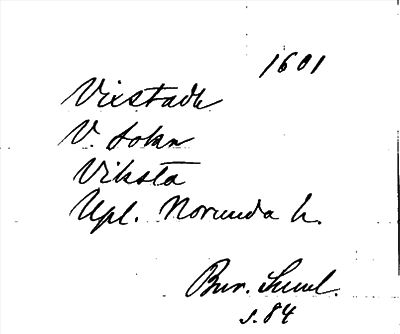 1601
Vixstadh
V. Sokn
Viksta
Upl. Norunda h.
Bur. Suml.
s. 84